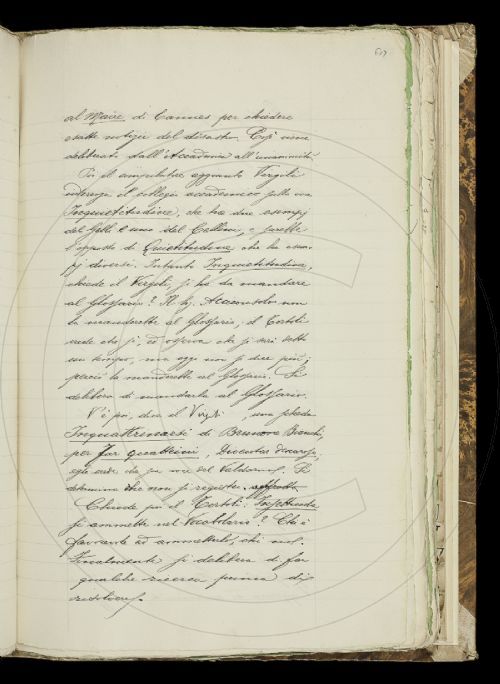 al Maire di Cannes per chiedere
esatte notizie del disastro. Così venne
deliberato dall'Accademia all'unanimità.
Poi il compilatore aggiunto Vergili
interroga il collegio accademico sulla voce
Inquietitudine, che ha due esempj
del Gelli e uno del Cellini, e sarebbe
l'opposto di Quietitudine che ha esem-
pj diversi. Intanto Inquietitudine,
chiede il Vergili, si ha da mandare
al Glossario? Il Sig. Arciconsolo non
la manderebbe al Glossario, il Tortoli
crede che sì, ed osserva che si sarà detto
un tempo, ma oggi non si dice più;
perciò la manderebbe al Glossario. Si
delibera di mandarla al Glossario.
V'è poi, dice il Vergili, una scheda
Inquattrinarsi di Brunone Bianchi,
per Far quattrini,
egli crede che sia voce del Valdarno. Si
determina che non si registri.
Chiede poi il Tortoli:
si ammette nel Vocabolario? Chi è
favorevole ad ammetterlo, chi no.
Finalmente si delibera di far
qualche ricerca prima di
risolvere.